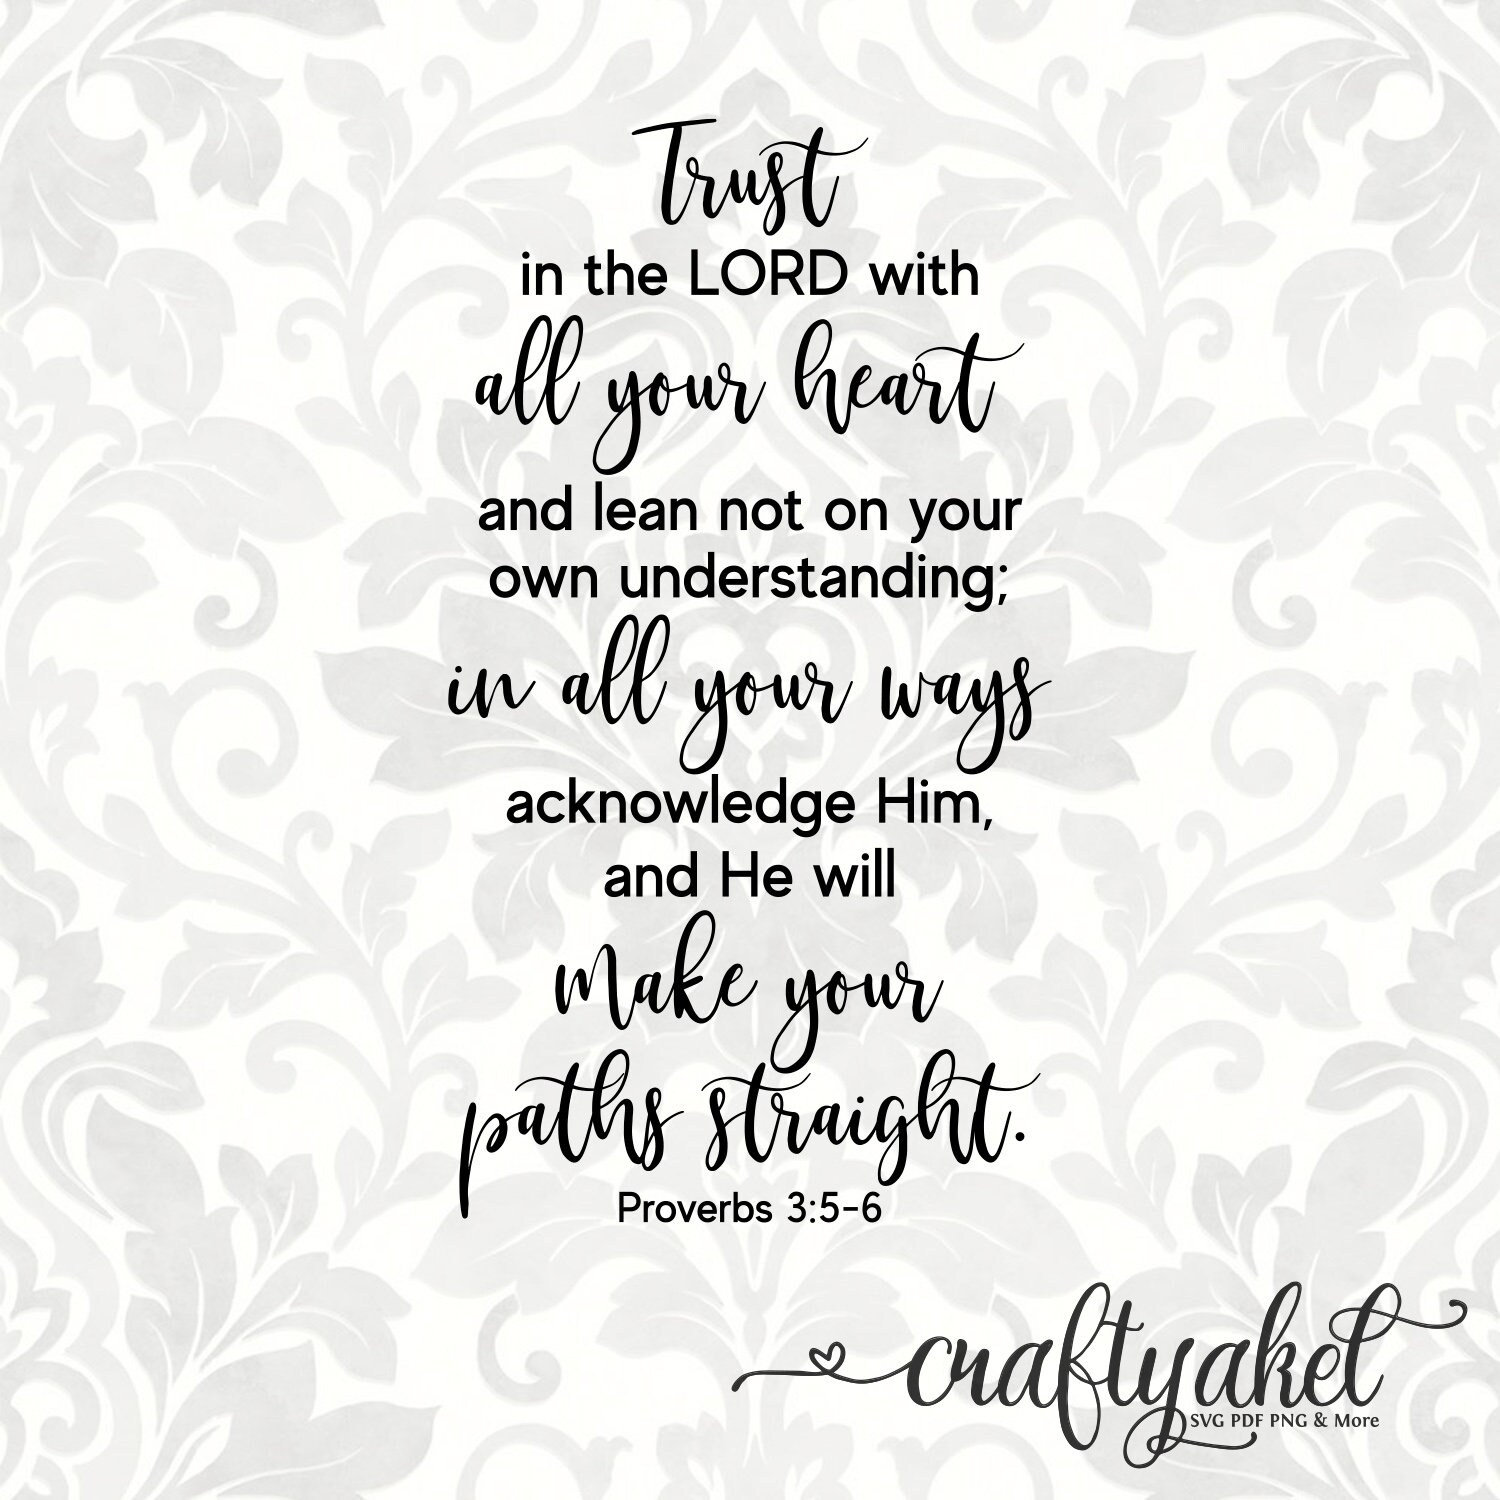 Trust
in the LORD with
all your heart
and lean not on your
own understanding;
in all your ways
acknowledge Him,
and He will
make your
paths straight.
Proverbs 3:5-6
craftyaket
SVG PDF PNG & More